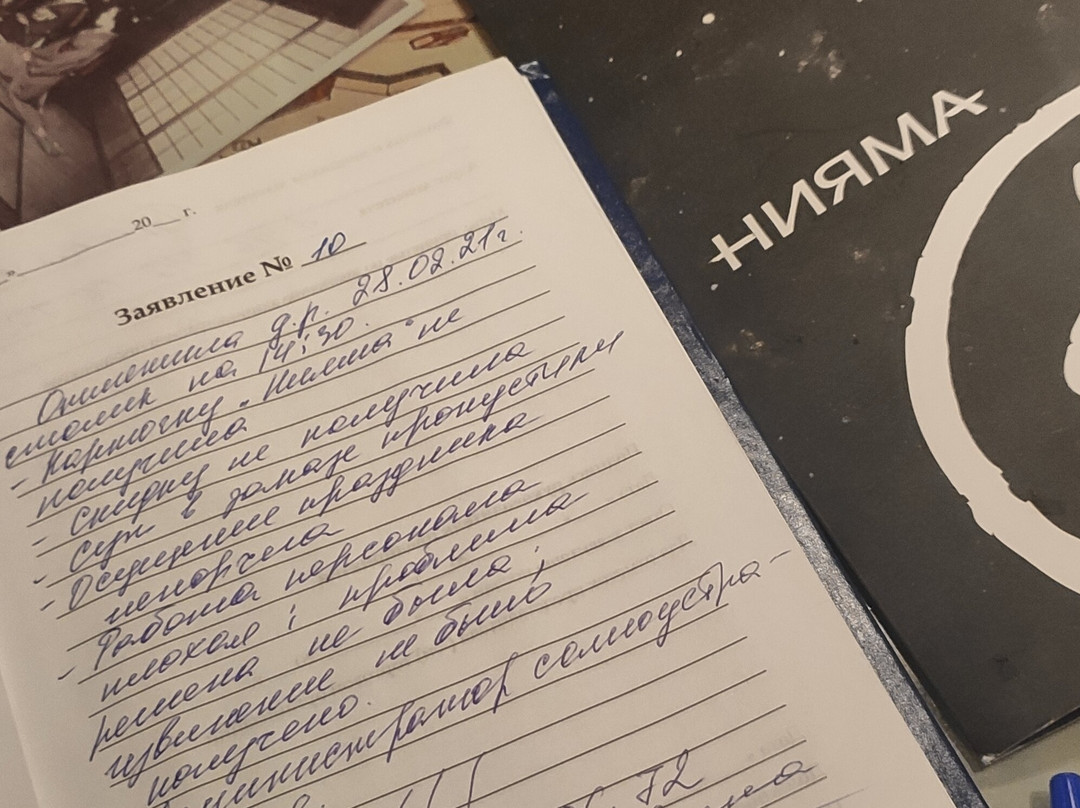 20__ г.
Заявление № 10
Отменила д.р. 28.02.21г.
столик на 14:30.
- Карточку "Нияма" не
получила
- скидку не получила
- суп в заказе пропустили
- Осущение праздника
испорчела
- Работа персонала
плохая; проблема
решена не была;
извинение не было
получено.
администратор самоустра-
72
НИЯМА